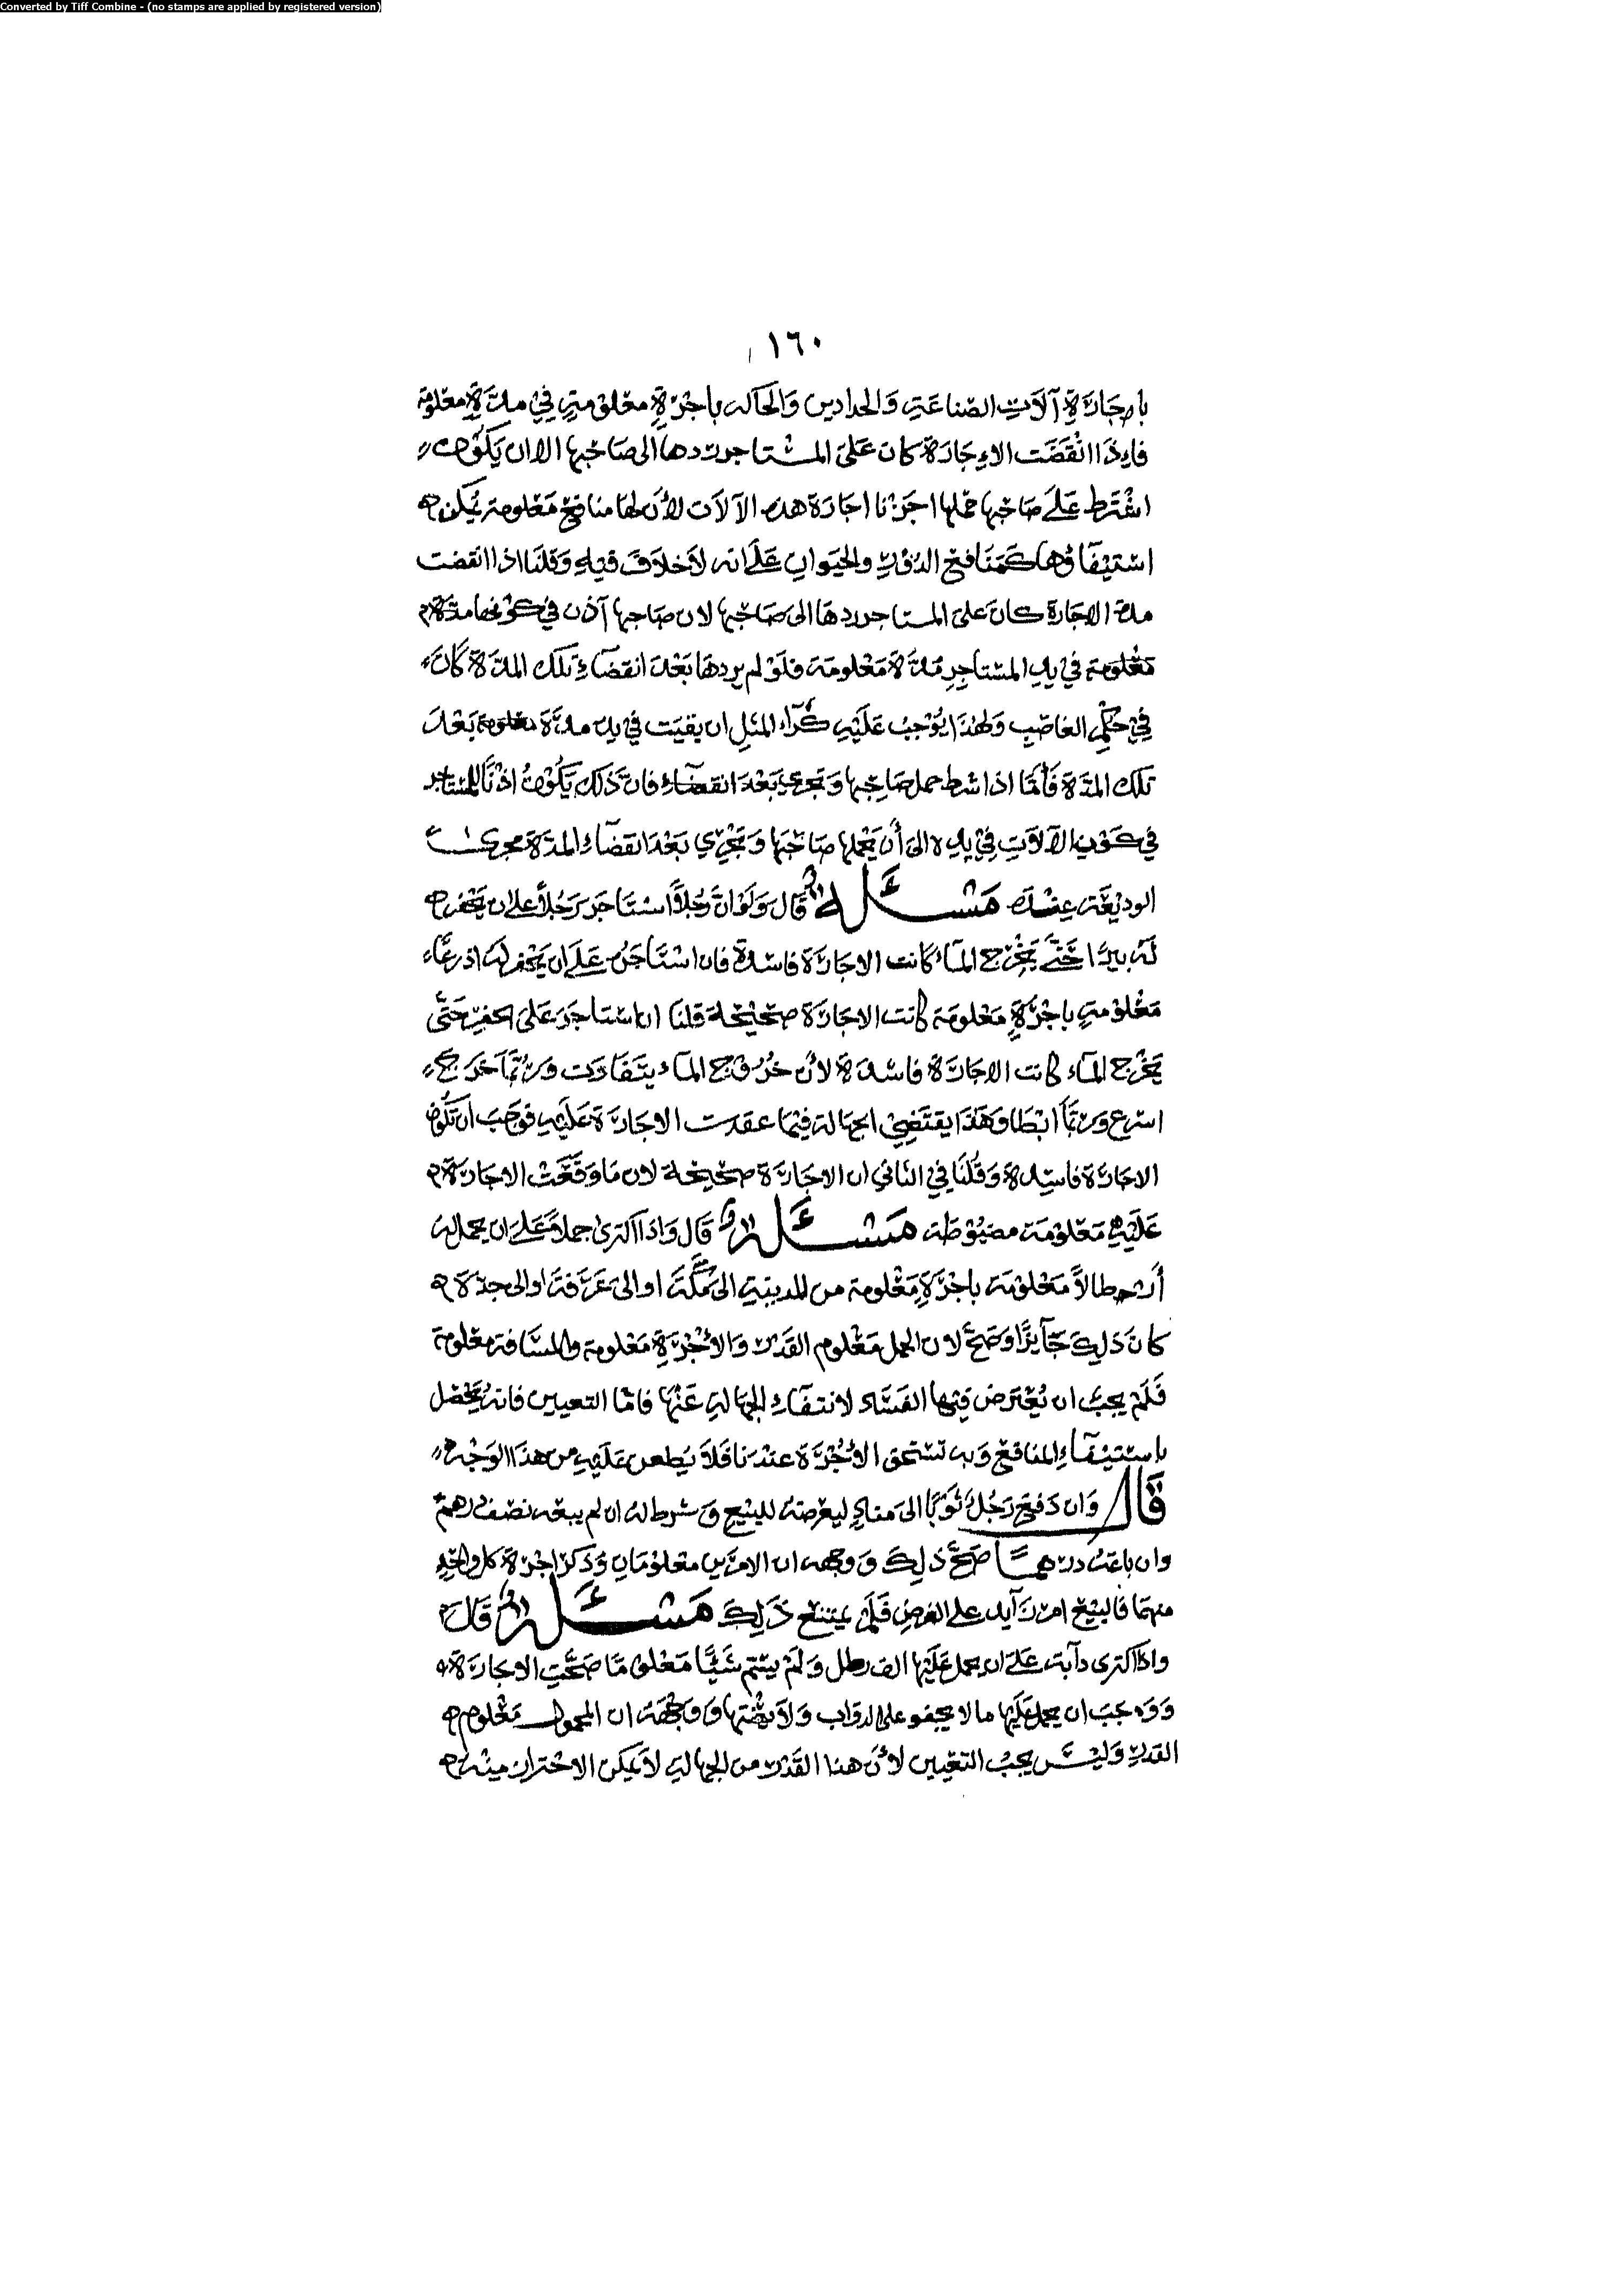 Converted by Tiff Combine - (no stamps are applied by registered version)
١٦٠
باجارة آلات الصناعة والحدادين والحاكه باجرة معلومة في مدة معلومة
فاذا انقضت الاجارة كان على المستاجر ردها الى صاحبها الا ان يكون
اشترط على صاحبها حملها اجزنا اجارة هذه الآلات لأن لها منافع معلومة يمكن
استيفاؤها كمنافع الدور والحيوان على انه لا خلاف فيه وقلنا اذا انقضت
مدة الاجارة كان على المستاجر ردها الى صاحبها لان صاحبها آذن في كونها مدة
معلومة في يد المستاجر مدة معلومة فلو لم يردها بعد انقضاء تلك المدة كان
في حكم الغاصب ولهذا يوجب عليه كراء المثل ان بقيت في يده مدة معلومة بعد
تلك المدة فأما اذا شرط حمل صاحبها بعد انقضاء فان ذلك يكون اذنا للمستاجر
في كون الآلات في يده الى أن يحملها صاحبها وتجري بعد انقضاء المدة مجرى
الوديعة عنده مسئلة قال ولو ان رجلا استاجر رجلا على ان يحفر
له بيرا حتى يخرج الماء كانت الاجارة فاسدة فان استاجره على ان يحفر له اذرعا
معلومة باجرة معلومة كانت الاجارة صحيحة قلنا ان استاجر على الحفر حتى
يخرج الماء كانت الاجارة فاسدة لأن خروج الماء يتفاوت وربما خرج
اسرع وربما ابطا وهذا يقتضي الجهالة فيما عقدت الاجارة عليه فوجب ان تكون
الاجارة فاسدة وقلنا في الثاني ان الاجارة صحيحة لان ما وقعت الاجارة
عليه معلومة مضبوطة مسئلة قال واذا اكترى جملا على ان يحمل له
أرطالا معلومة باجرة معلومة من المدينة الى مكة او الى عرفة او الى جدة
كان ذلك جآيزا وصح لان الحمل معلوم القدر والأجرة معلومة والمسافة معلومة
فلم يجب ان يعترض فيها الفساد لانتفاء الجهالة عنها فاما التعيين فانه يحصل
باستيفاء المنافع وبه تستحق الأجرة عندنا فلا يطعن عليه من هذا الوجه
قال وان دفع رجل ثوبا الى مناد ليعرضه للبيع وشرط له ان لم يبعه نصف درهم
وان باعه درهما صح ذلك ووجهه ان الامرين معلومان وذكر اجرة كل واحد
منهما فالبيع امر زايد على العرض فلم يمتنع ذلك مسئلة قال
واذا اكترى دآبة على ان يحمل عليها الف رطل ولم يسم شيئا معلوما صحت الاجارة
ووجب ان يحمل عليها ما لا يجفو على الدواب ولا ووجهه ان المحمول معلوم
القدر وليس يجب التعيين لأن هذا القدر من الجهالة لا يمكن الاحتراز منه